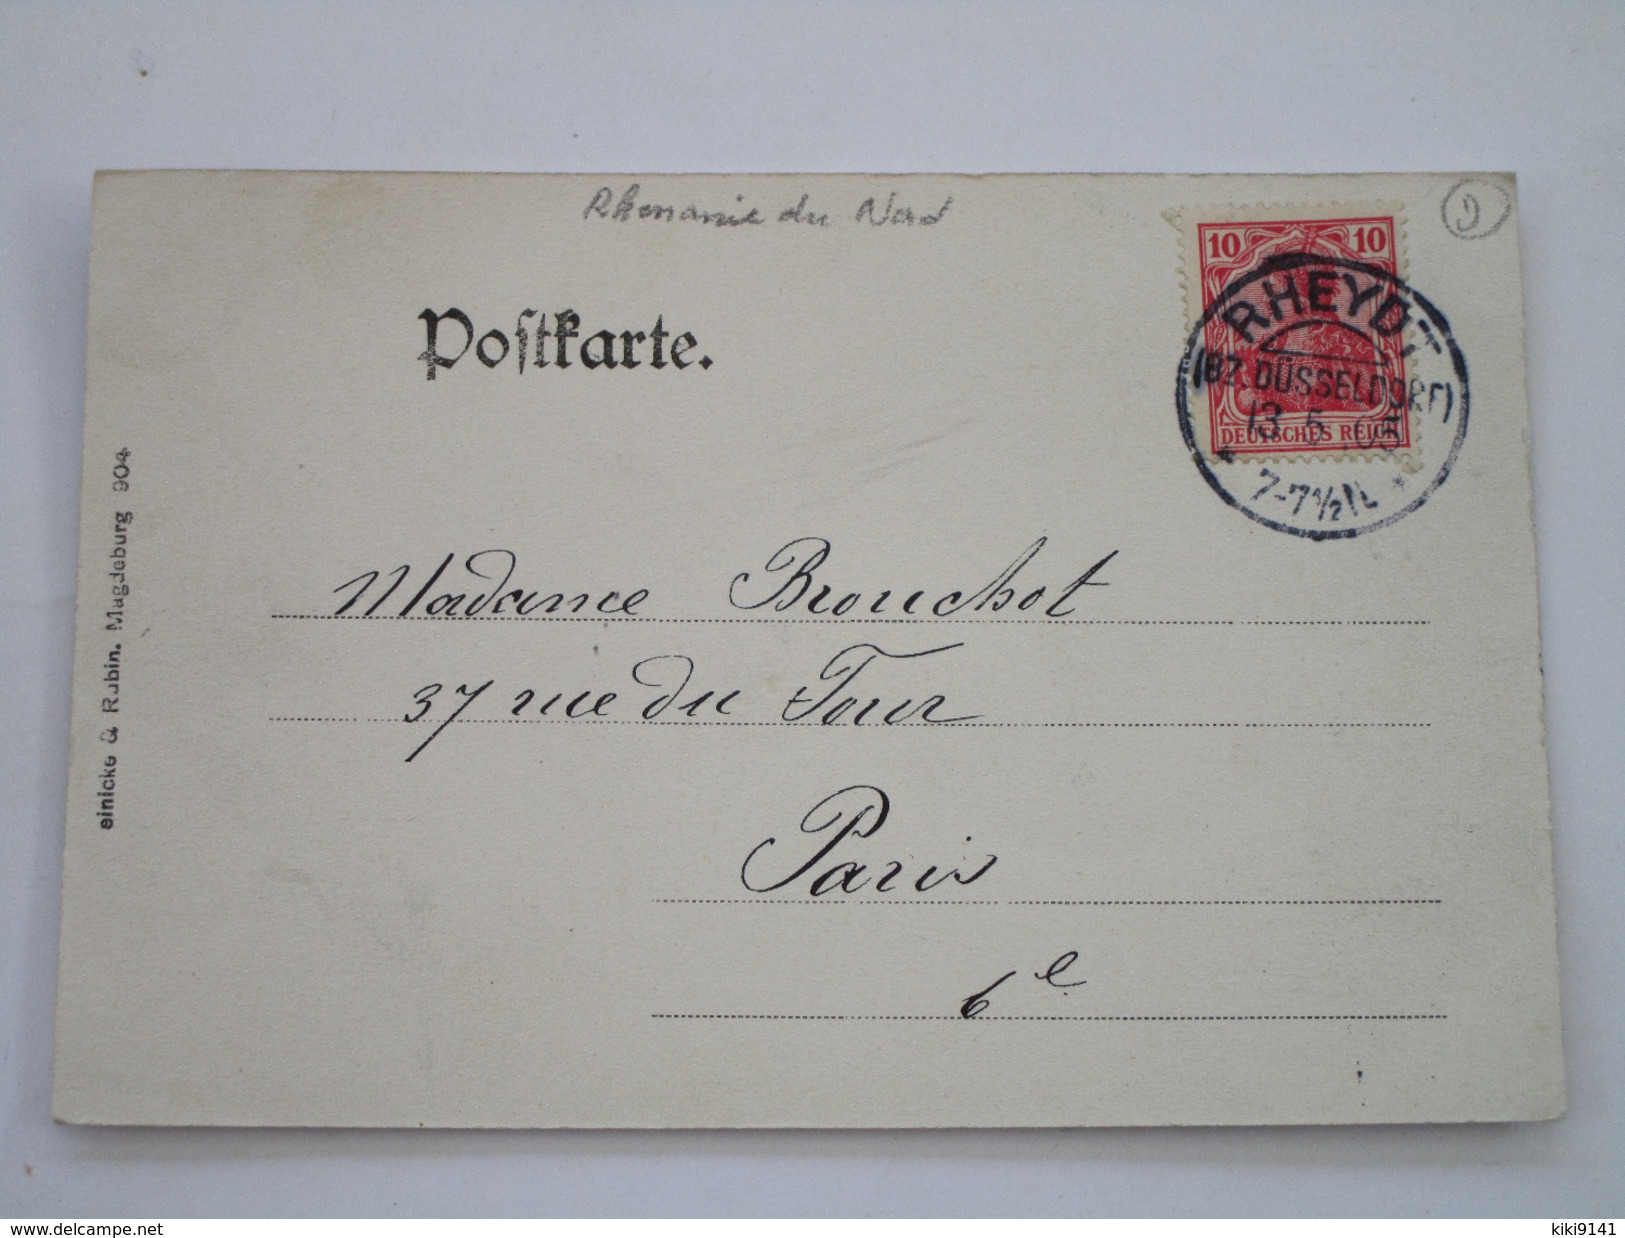 Rhenanie du Nord
10 10
DEUTSCHES REICH
RHEYDT
(BZ. DÜSSELDORF)
13 5 03
7-7½ N.
Postkarte.
Madame Brouchot
37 rue du Four
Paris
6e
einicke & Rubin. Magdeburg 904
www.delcampe.net
kiki9141